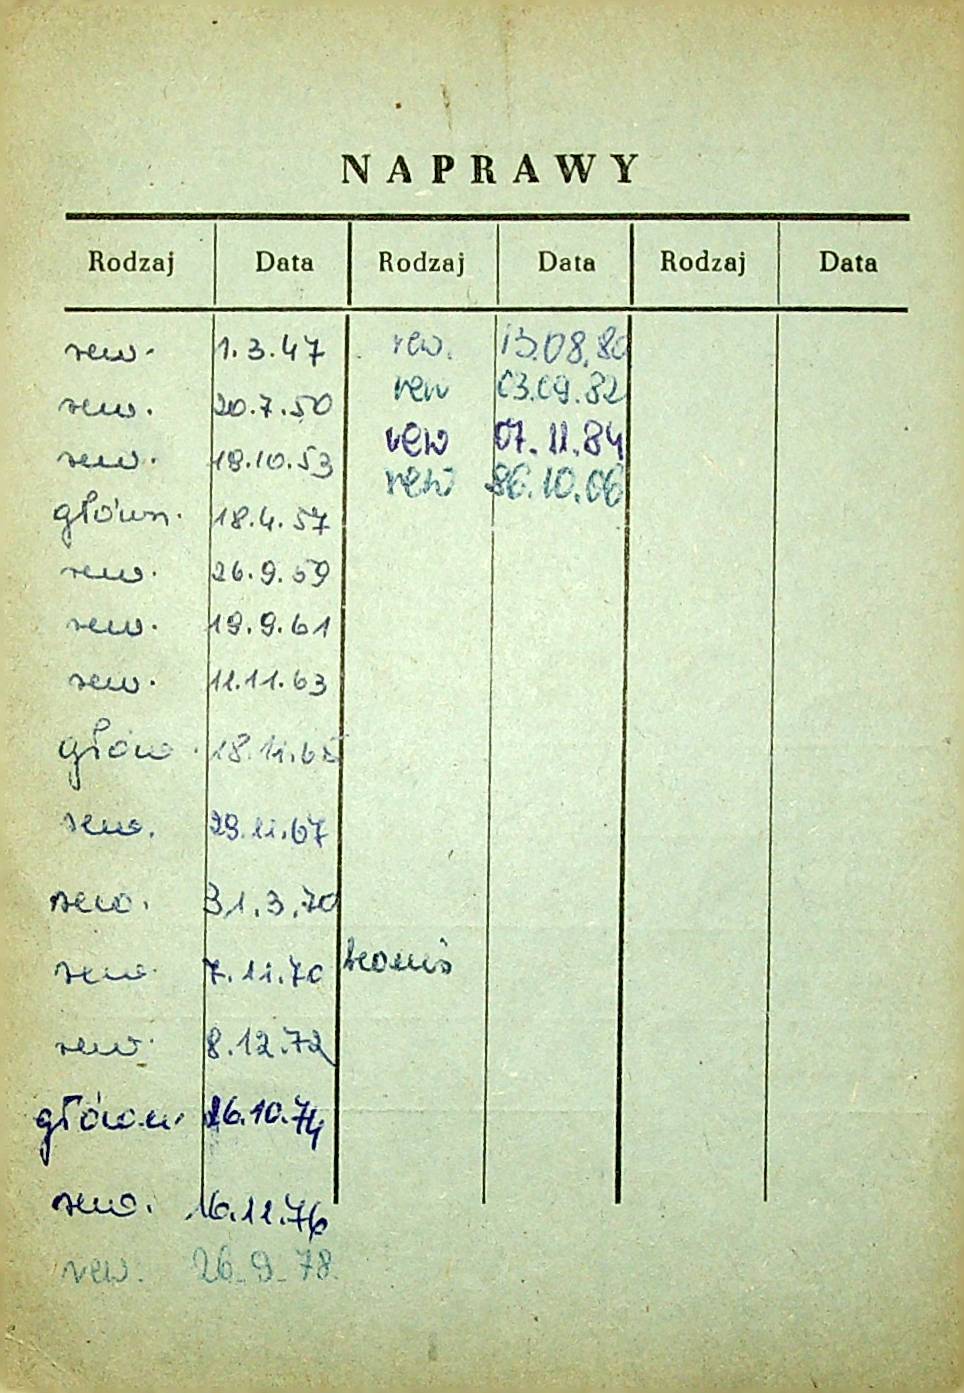 NAPRAWY
Rodzaj Data Rodzaj Data Rodzaj Data
rew. 1.3.47 rew. 13.08.80
rew. 20.7.50 rew 03.09.82
rew. 19.10.53 rew 07.11.84
główn. 18.4.57 rew 86.10.06
rew. 26.9.59
rew. 19.9.61
rew. 11.11.63
głów. 18.11.65
rew. 29.11.67
rew. 31.3.70
rew. 7.11.70
rew. 8.12.72
główn. 26.10.74
rew. 16.11.76
rew. 26.9.78.